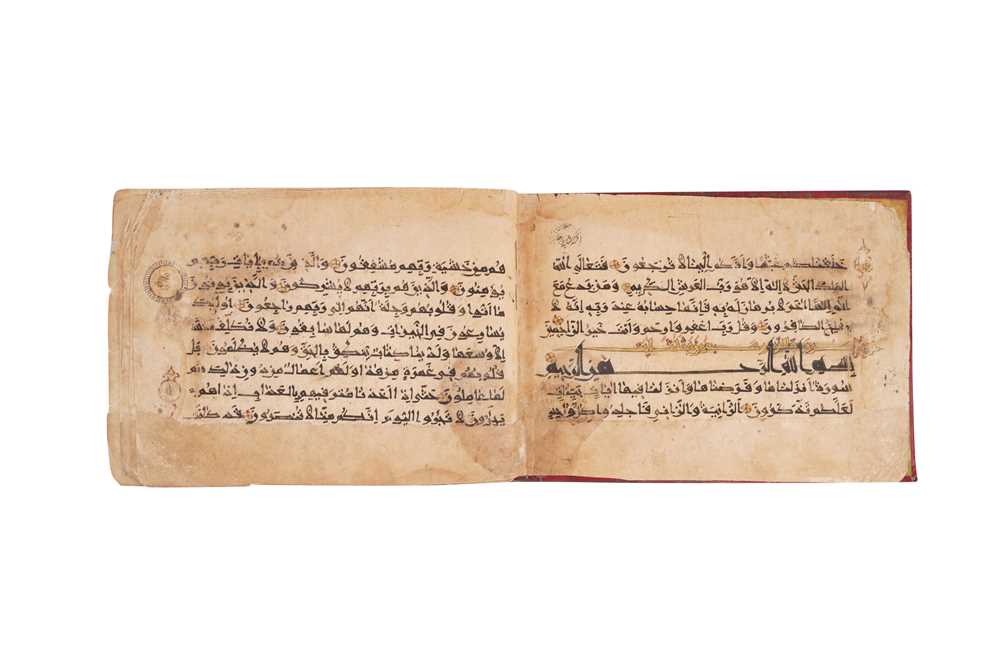 خلقناكم عبثا وانكم الينا لا ترجعون فتعالى الله
الملك الحق لا اله الا هو رب العرش الكريم ومن يدع مع
الله الها اخر لا برهان له به فانما حسابه عند ربه انه لا
يفلح الكافرون وقل رب اغفر وارحم وانت خير الراحمين
بسم الله الرحمن الرحيم
سورة انزلناها وفرضناها وانزلنا فيها ايات بينات
لعلكم تذكرون الزانية والزاني فاجلدوا كل واحد
هم من خشية ربهم مشفقون والذين هم بايات ربهم
يؤمنون والذين هم بربهم لا يشركون والذين يؤتون
ما اتوا وقلوبهم وجلة انهم الى ربهم راجعون اولئك
يسارعون في الخيرات وهم لها سابقون ولا نكلف نفسا
الا وسعها ولدينا كتاب ينطق بالحق وهم لا يظلمون بل
قلوبهم في غمرة من هذا ولهم اعمال من دون ذلك هم
لها عاملون حتى اذا اخذنا مترفيهم بالعذاب اذا هم
يجرون لا تجروا اليوم انكم منا لا تنصرون قد كانت